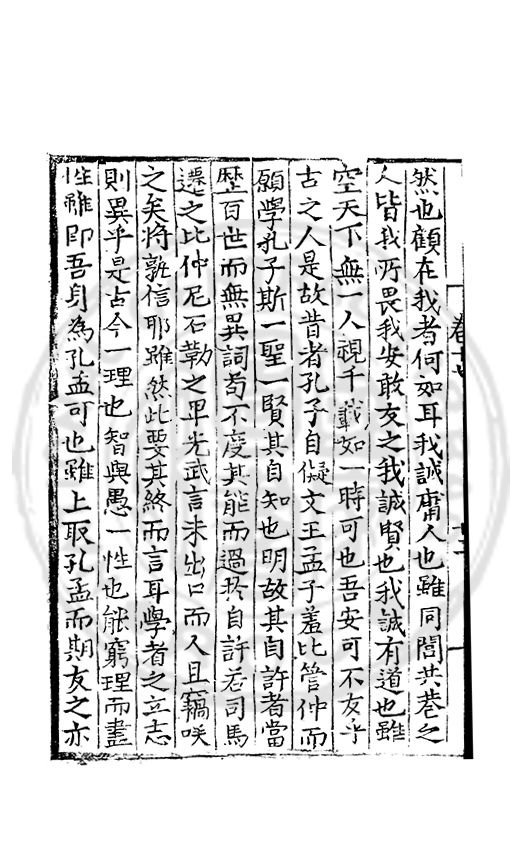 然也顧在我者何如耳我誠庸人也雖同閭共巷之
人皆我所畏我安敢友之我誠賢也我誠有道也雖
空天下無一人視千載如一時可也吾安可不友乎
古之人是故昔者孔子自儗文王孟子羞比管仲而
願學孔子斯一聖一賢其自知也明故其自許者當
歷百世而無異詞苟不度其能而過於自許若司馬
遷之比仲尼石勒之卑光武言未出口而人且竊咲
之矣將孰信耶雖然此要其終而言耳學者之立志
則異乎是古今一理也智與愚一性也能窮理而盡
性雖即吾身為孔孟可也雖上取孔孟而期友之亦
卷十